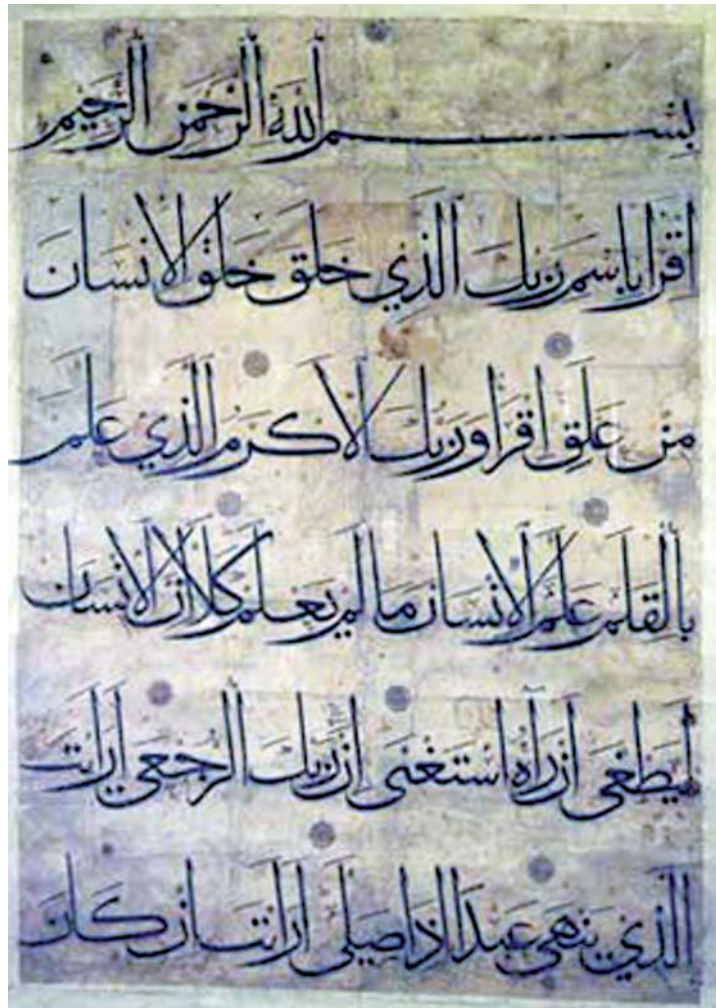 بسم الله الرحمن الرحيم
اقرا باسم ربك الذي خلق خلق الانسان
من علق اقرا وربك الاكرم الذي علم
بالقلم علم الانسان ما لم يعلم كلا ان الانسان
ليطغى ان رآه استغنى ان ربك الرجعى ارايت
الذي ينهى عبدا اذا صلى ارايت ان كان